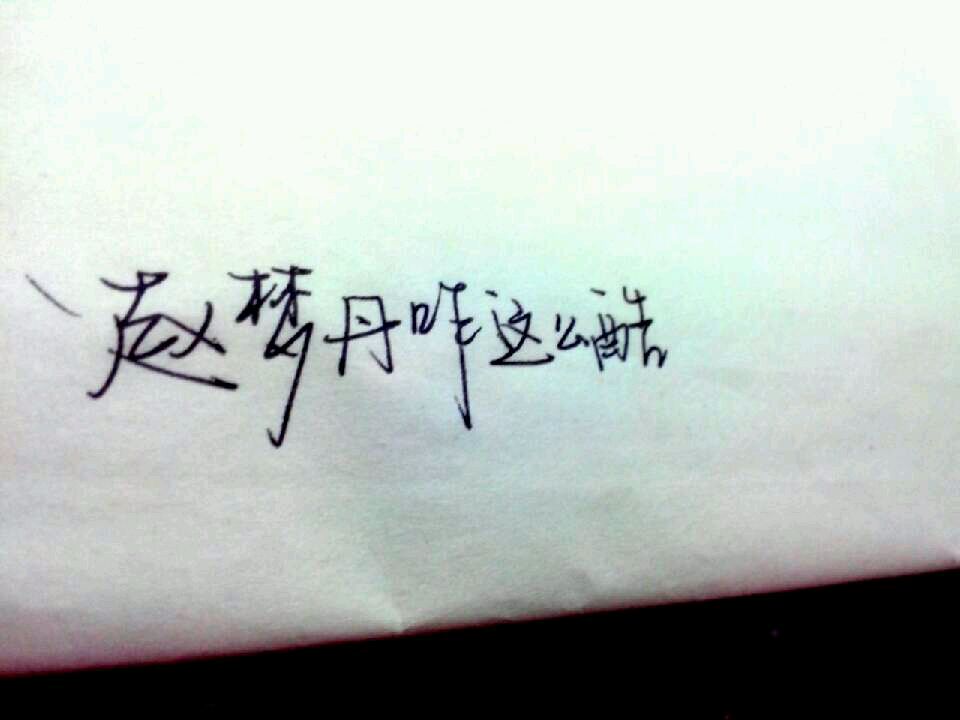 赵梦丹咋这么酷